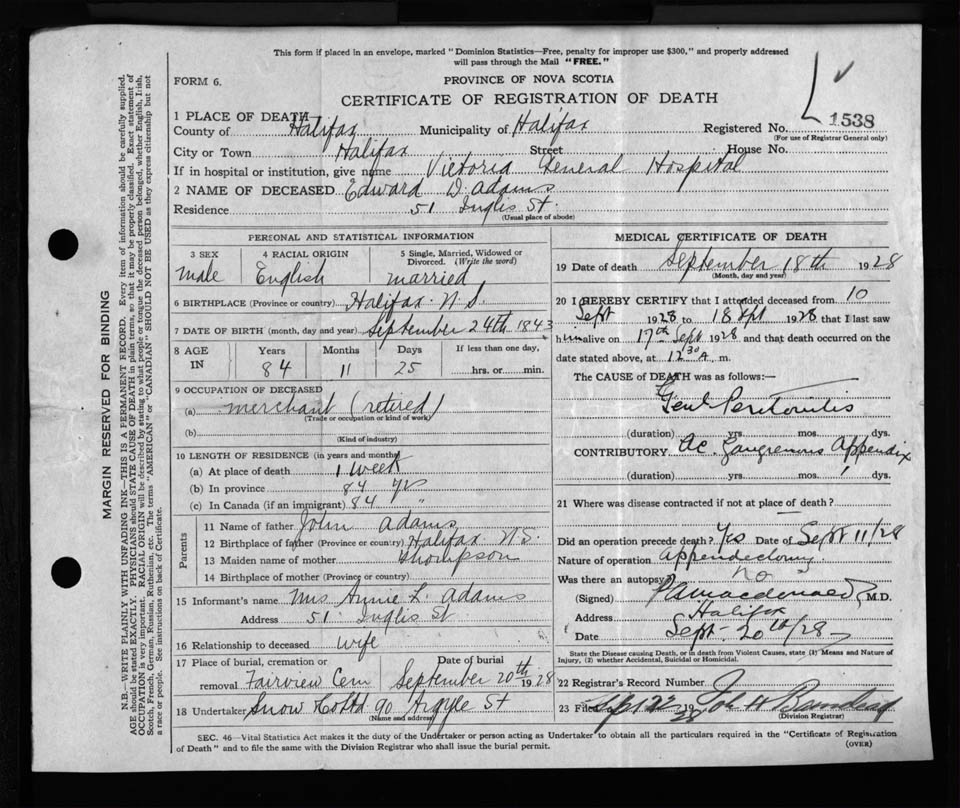 This form if placed in an envelope, marked "Dominion Statistics—Free, penalty for improper use $300," and properly addressed
will pass through the Mail "FREE."
FORM 6.
PROVINCE OF NOVA SCOTIA
CERTIFICATE OF REGISTRATION OF DEATH
1 PLACE OF DEATH
County of Halifax Municipality of Halifax Registered No. 1538
(For use of Registrar General only)
City or Town Halifax Street House No.
If in hospital or institution, give name Victoria General Hospital
2 NAME OF DECEASED Edward D. Adams
Residence 51 Inglis St.
(Usual place of abode)
MARGIN RESERVED FOR BINDING
N.B.—WRITE PLAINLY, WITH UNFADING INK—THIS IS A PERMANENT RECORD. Every item of information should be carefully supplied.
AGE should be stated EXACTLY. PHYSICIANS should STATE CAUSE OF DEATH in plain terms, so that it may be properly classified. Exact statement of
OCCUPATION is very important. RACIAL ORIGIN will be described by stating to what people or tongue the deceased person belonged, whether English, Irish,
Scotch, French, German, Russian, Ruthenian, etc. The terms "AMERICAN" or "CANADIAN" SHOULD NOT BE USED as they express citizenship but not
a race or people. See instructions on back of Certificate.
PERSONAL AND STATISTICAL INFORMATION
3 SEX 4 RACIAL ORIGIN 5 Single, Married, Widowed or
Divorced. (Write the word)
Male English married
6 BIRTHPLACE (Province or country) Halifax N.S.
7 DATE OF BIRTH (month, day and year) September 24th 1843
8 AGE IN Years Months Days If less than one day,
84 11 25 hrs. or min.
9 OCCUPATION OF DECEASED
(a) merchant (retired)
(Trade or occupation or kind of work)
(b)
(Kind of industry)
10 LENGTH OF RESIDENCE (in years and months)
(a) At place of death 1 week
(b) In province 84 yrs
(c) In Canada (if an immigrant) 84 "
Parents
11 Name of father John Adams
12 Birthplace of father (Province or country) Halifax N.S.
13 Maiden name of mother Thompson
14 Birthplace of mother (Province or country)
15 Informant's name Mrs Annie L. Adams
Address 51 Inglis St
16 Relationship to deceased wife
17 Place of burial, cremation or Date of burial
removal Fairview Cem September 20th 1928
18 Undertaker Snow Co Ltd 90 Argyle St
(Name and address)
MEDICAL CERTIFICATE OF DEATH
19 Date of death September 18th 1928
(Month, day and year)
20 I HEREBY CERTIFY that I attended deceased from 10
Sept 1928 to 18 Sept 1928 that I last saw
him alive on 17th Sept 1928 and that death occurred on the
date stated above, at 12 30 A. m.
The CAUSE of DEATH was as follows:—
Genl Peritonitis
(duration) yrs. mos. dys.
CONTRIBUTORY Ac. Gangrenous Appendix
(duration) yrs. mos. dys.
21 Where was disease contracted if not at place of death?
Did an operation precede death? Yes Date of Sept 11/28
Nature of operation Appendectomy
Was there an autopsy? no
(Signed) Macdonald, M.D.
Address Halifax
Date Sept. 20th/28
State the Disease causing Death, or in death from Violent Causes, state (1) Means and Nature of
Injury, (2) whether Accidental, Suicidal or Homicidal.
22 Registrar's Record Number
23 Filed 19
(Division Registrar)
SEC. 46—Vital Statistics Act makes it the duty of the Undertaker or person acting as Undertaker to obtain all the particulars required in the "Certificate of Registration
of Death" and to file the same with the Division Registrar who shall issue the burial permit. (OVER)